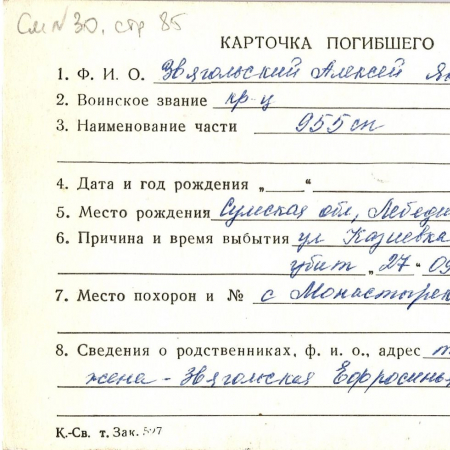 См № 30, стр 85
КАРТОЧКА ПОГИБШЕГО
1. Ф. И. О. Звягольский Алексей Як
2. Воинское звание кр-ц
3. Наименование части 955 сп
4. Дата и год рождения „ “
5. Место рождения Сумская обл, Лебеди
6. Причина и время выбытия ул Казиевка
убит „27“ 09
7. Место похорон и № с Монастырек
8. Сведения о родственниках, ф. и о., адрес
жена - Звягольская Ефросинья
К.-Св. т. Зак. 597